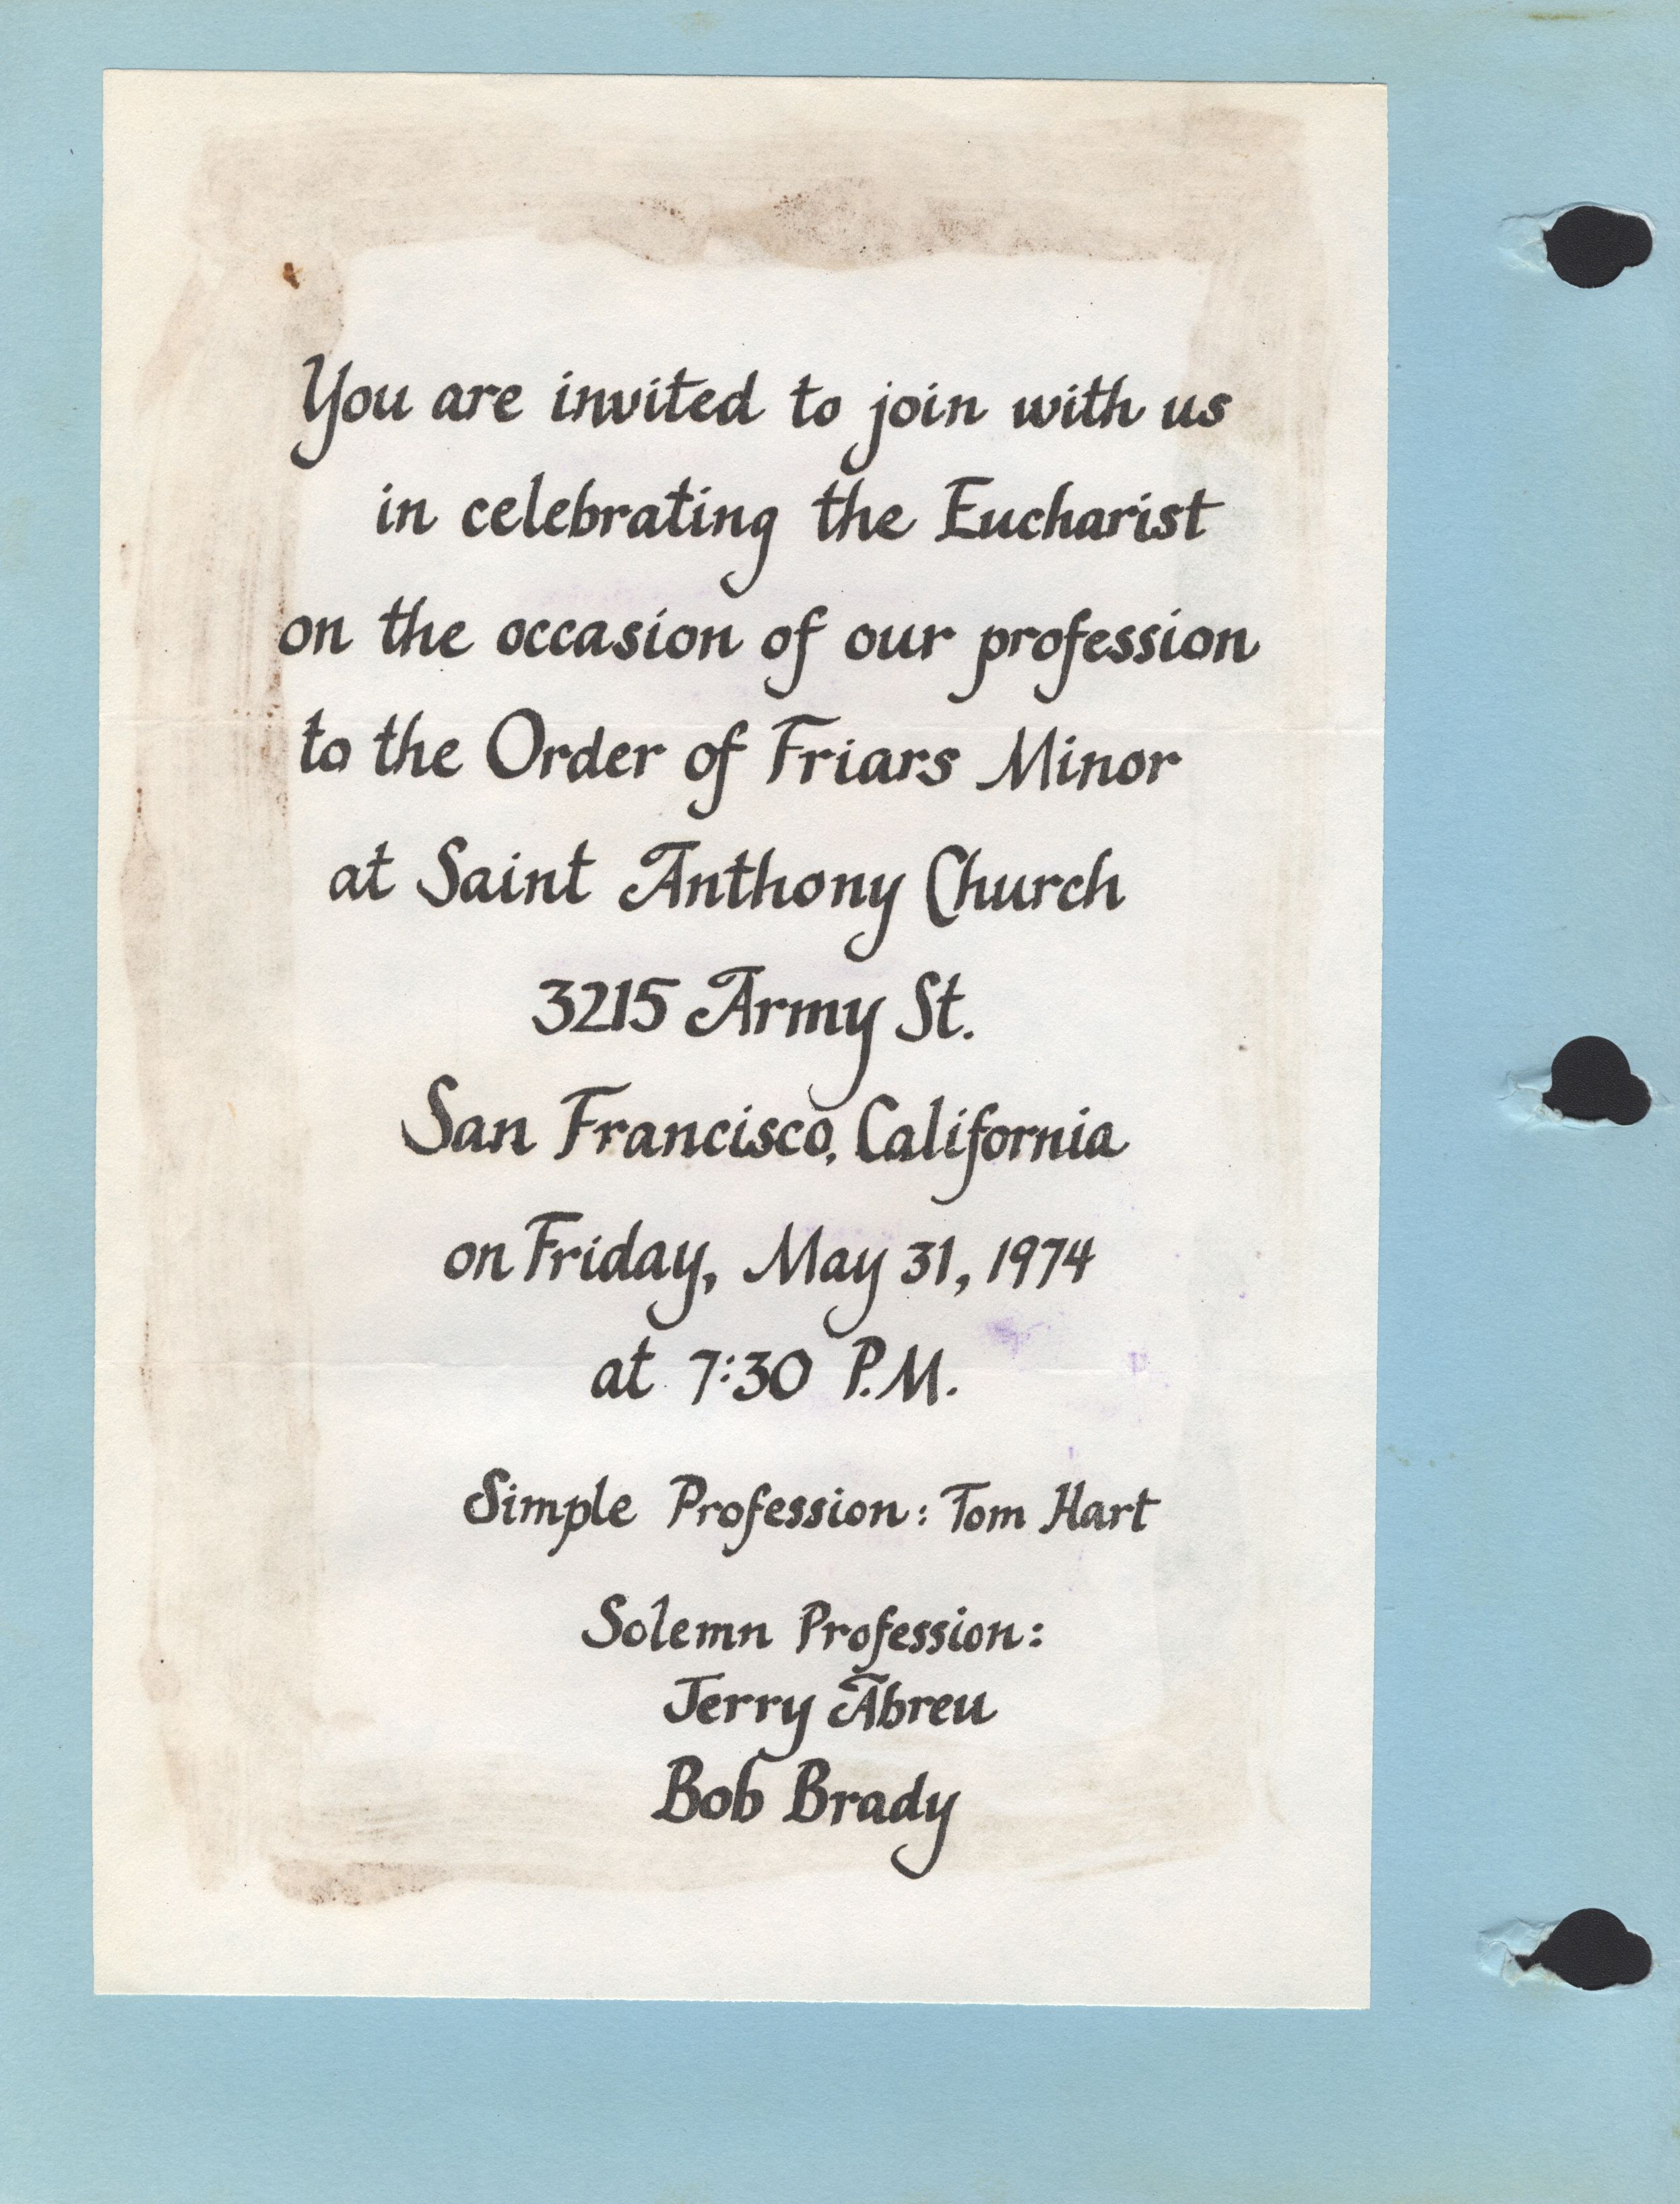 You are invited to join with us
in celebrating the Eucharist
on the occasion of our profession
to the Order of Friars Minor
at Saint Anthony Church
3215 Army St.
San Francisco, California
on Friday, May 31, 1974
at 7:30 P.M.
Simple Profession: Tom Hart
Solemn Profession:
Jerry Abreu
Bob Brady